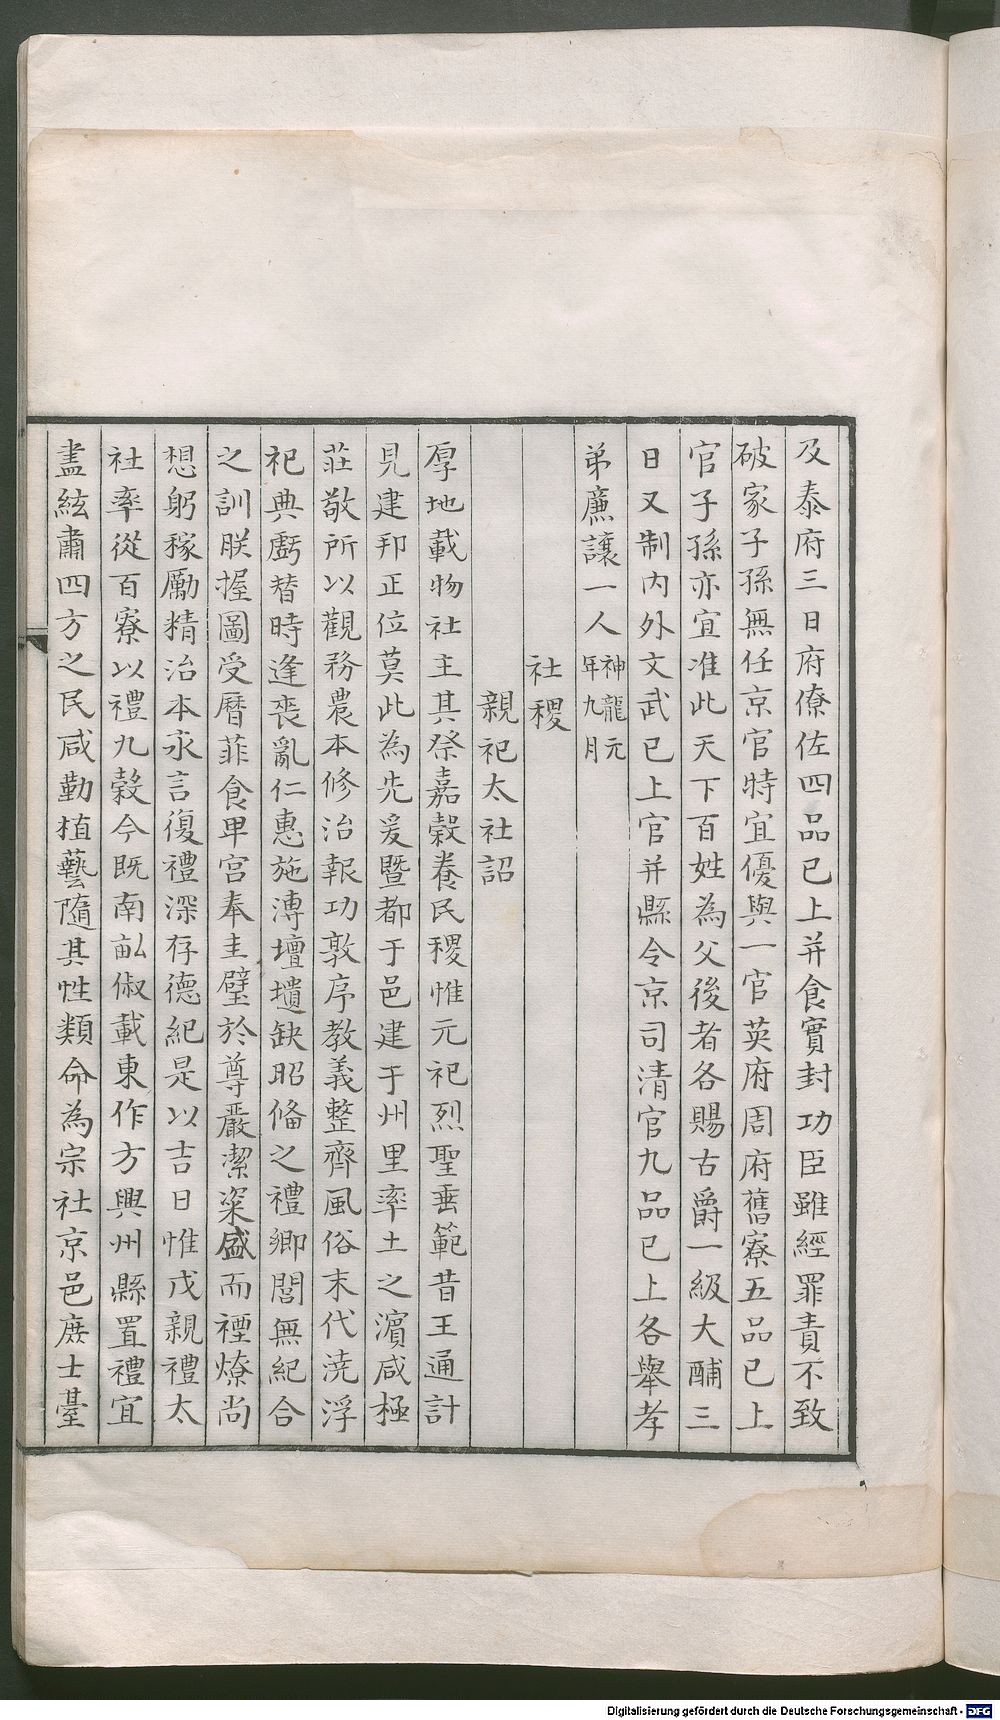 及泰府三日府僚佐四品已上并食實封功臣雖經罪責不致
破家子孫無任京官特宜優與一官英府周府舊寮五品已上
官子孫亦宜准此天下百姓為父後者各賜古爵一級大酺三
日又制内外文武已上官并縣令京司清官九品已上各舉孝
弟廉讓一人神龍元年九月
社稷
親祀太社詔
厚地載物社主其祭嘉穀養民稷惟元祀烈聖垂範昔王通計
見建邦正位莫此為先爰暨都于邑建于州里率土之濱咸極
莊敬所以觀務農本修治報功敦序教義整齊風俗末代澆浮
祀典虧替時逢喪亂仁惠施溥壇壝缺昭俻之禮鄉閭無紀合
之訓朕握圖受曆菲食卑宮奉圭璧於尊嚴潔粢盛而禋燎尚
想躬稼勵精治本永言復禮深存德紀是以吉日惟戊親禮太
社率從百寮以禮九穀今既南畝俶載東作方興州縣置禮宜
盡絃肅四方之民咸勤植藝隨其性類命為宗社京邑庶士臺
Digitalisierung gefördert durch die Deutsche Forschungsgemeinschaft - DFG